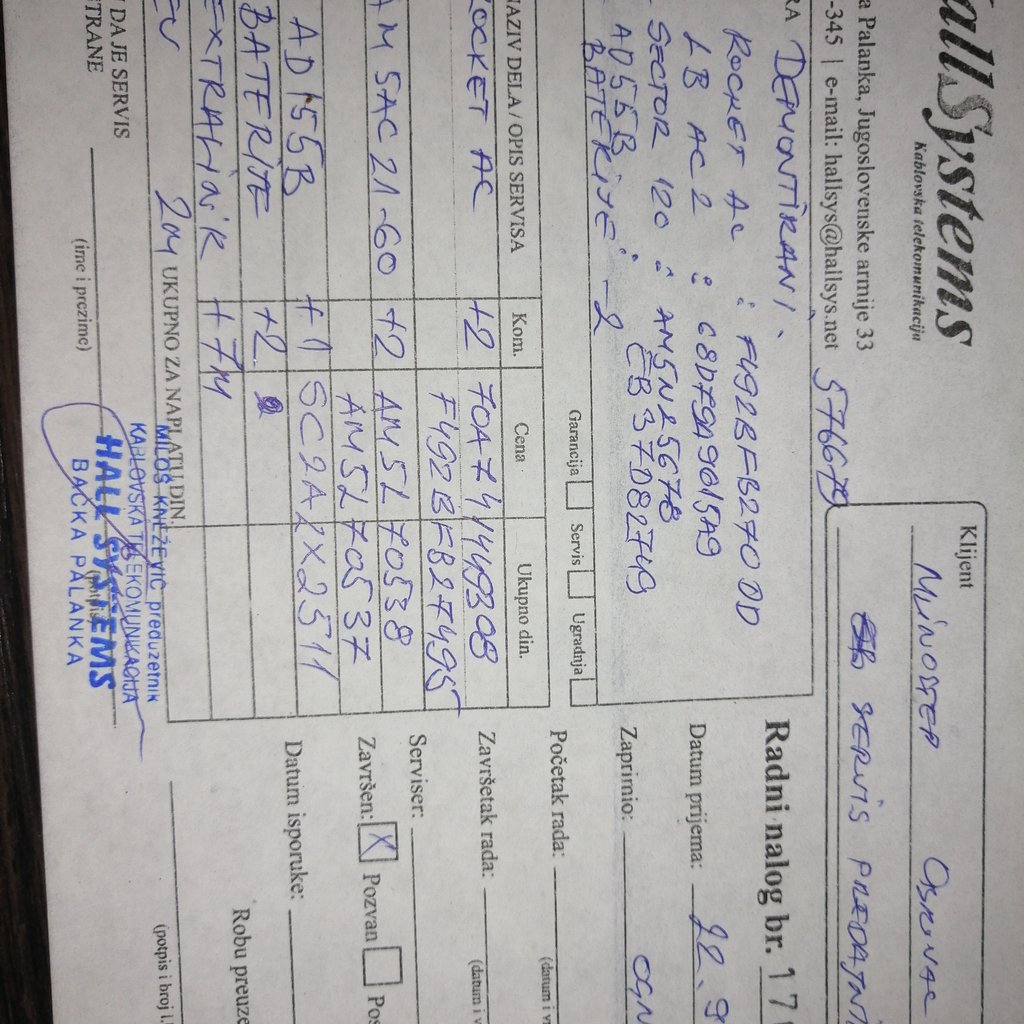 HallSystems
Kablovska telekomunikacija
a Palanka, Jugoslovenske armije 33
-345 | e-mail: hallsys@hallsys.net
Klijent
MINOSTEP
SERVIS PREDAJNI
RA DEMONTIRANI:
ROCKET AC : F492BFB270DD
LB AC 2 : 68D79A9015A9
SECTOR 120 : AM5N25678
AD55B : EB37D82749
BATERIJE : -2
Radni nalog br. 17
Datum prijema: 22.9
Zaprimio: OGN
Početak rada:
(datum i v
Završetak rada:
(datum i v
Serviser:
Završen: X Pozvan Pos
Datum isporuke:
Robu preuze
(potpis i broj l.
Garancija Servis Ugradnja
NAZIV DELA / OPIS SERVISA Kom. Cena Ukupno din.
ROCKET AC +2 70A741449308
F492BFB27495
AM 5AC21-60 +2 AM5L70538
AM5L70537
AD155B +1 SC2A2X2511
BATERIJE +2
EXTRALINIK +7M
2M UKUPNO ZA NAPLATU DIN.
DA JE SERVIS
STRANE
(ime i prezime)
(potpis)
MILOŠ KNEŽEVIĆ preduzetnik
KABLOVSKA TELEKOMUNIKACIJA
HALL SYSTEMS
BAČKA PALANKA